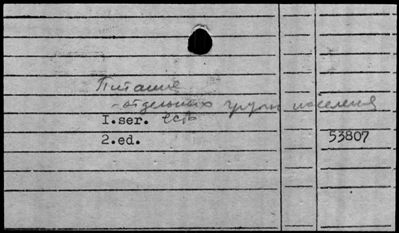 Питание
- отдельных групп населения
I.ser. есть
2.ed. 53807